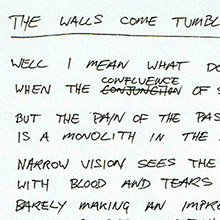 THE WALLS COME TUMBL
WELL I MEAN WHAT DO
CONFLUENCE
WHEN THE CONJUNCTION OF S
BUT THE PAIN OF THE PAS
IS A MONOLITH IN THE
NARROW VISION SEES THE
WITH BLOOD AND TEARS
BARELY MAKING AN IMPR